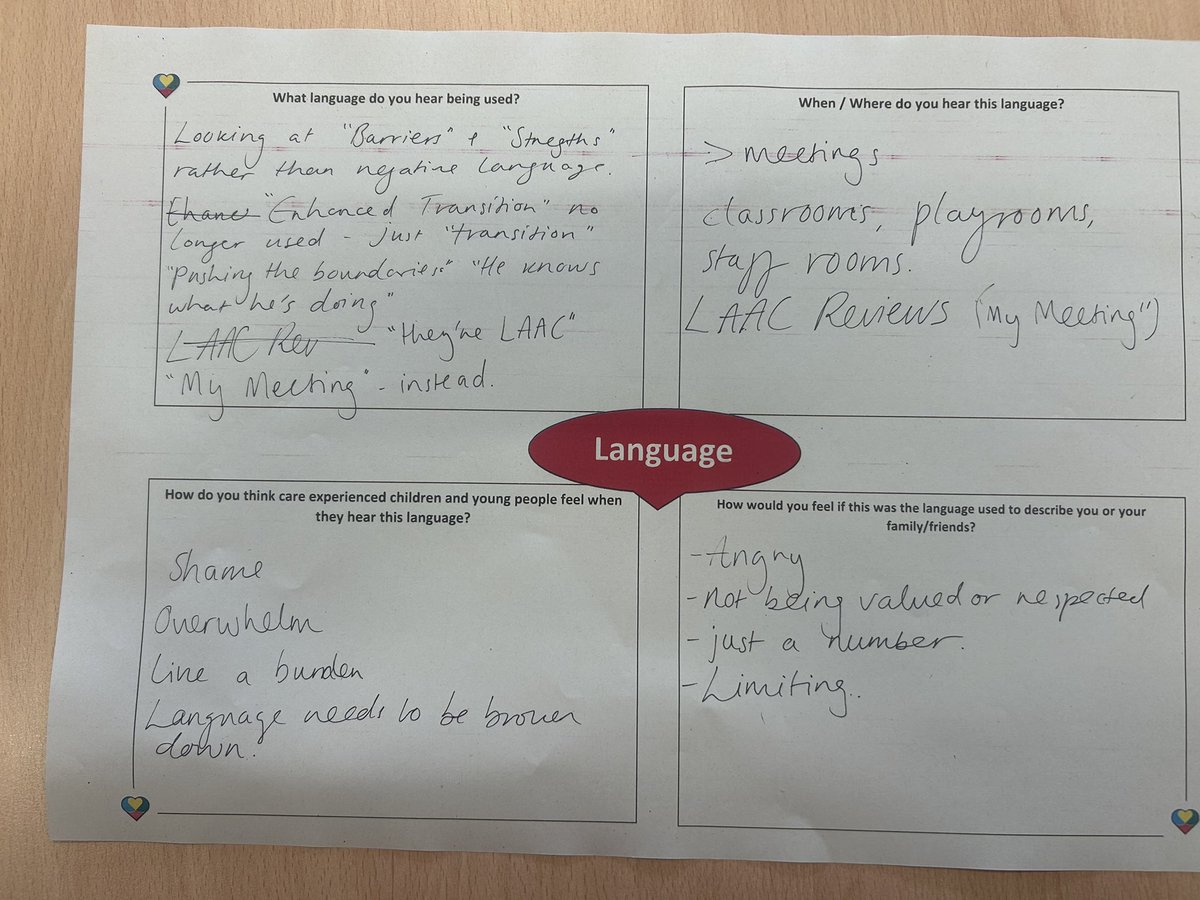 What language do you hear being used?
Looking at "Barriers" & "Stregths"
rather than negative language.
Ehance "Enhanced Transition" no
longer used - just "transition"
"Pushing the boundaries" "He knows
what he's doing"
LAAC Rev "they're LAAC"
"My Meeting" - instead.
When / Where do you hear this language?
> meetings
classrooms, playrooms,
staff rooms.
LAAC Reviews ("My Meeting")
Language
How do you think care experienced children and young people feel when
they hear this language?
Shame
Overwhelm
Like a burden
Language needs to be broken
down.
How would you feel if this was the language used to describe you or your
family/friends?
- Angry
- not being valued or respected
- just a number.
- Limiting..